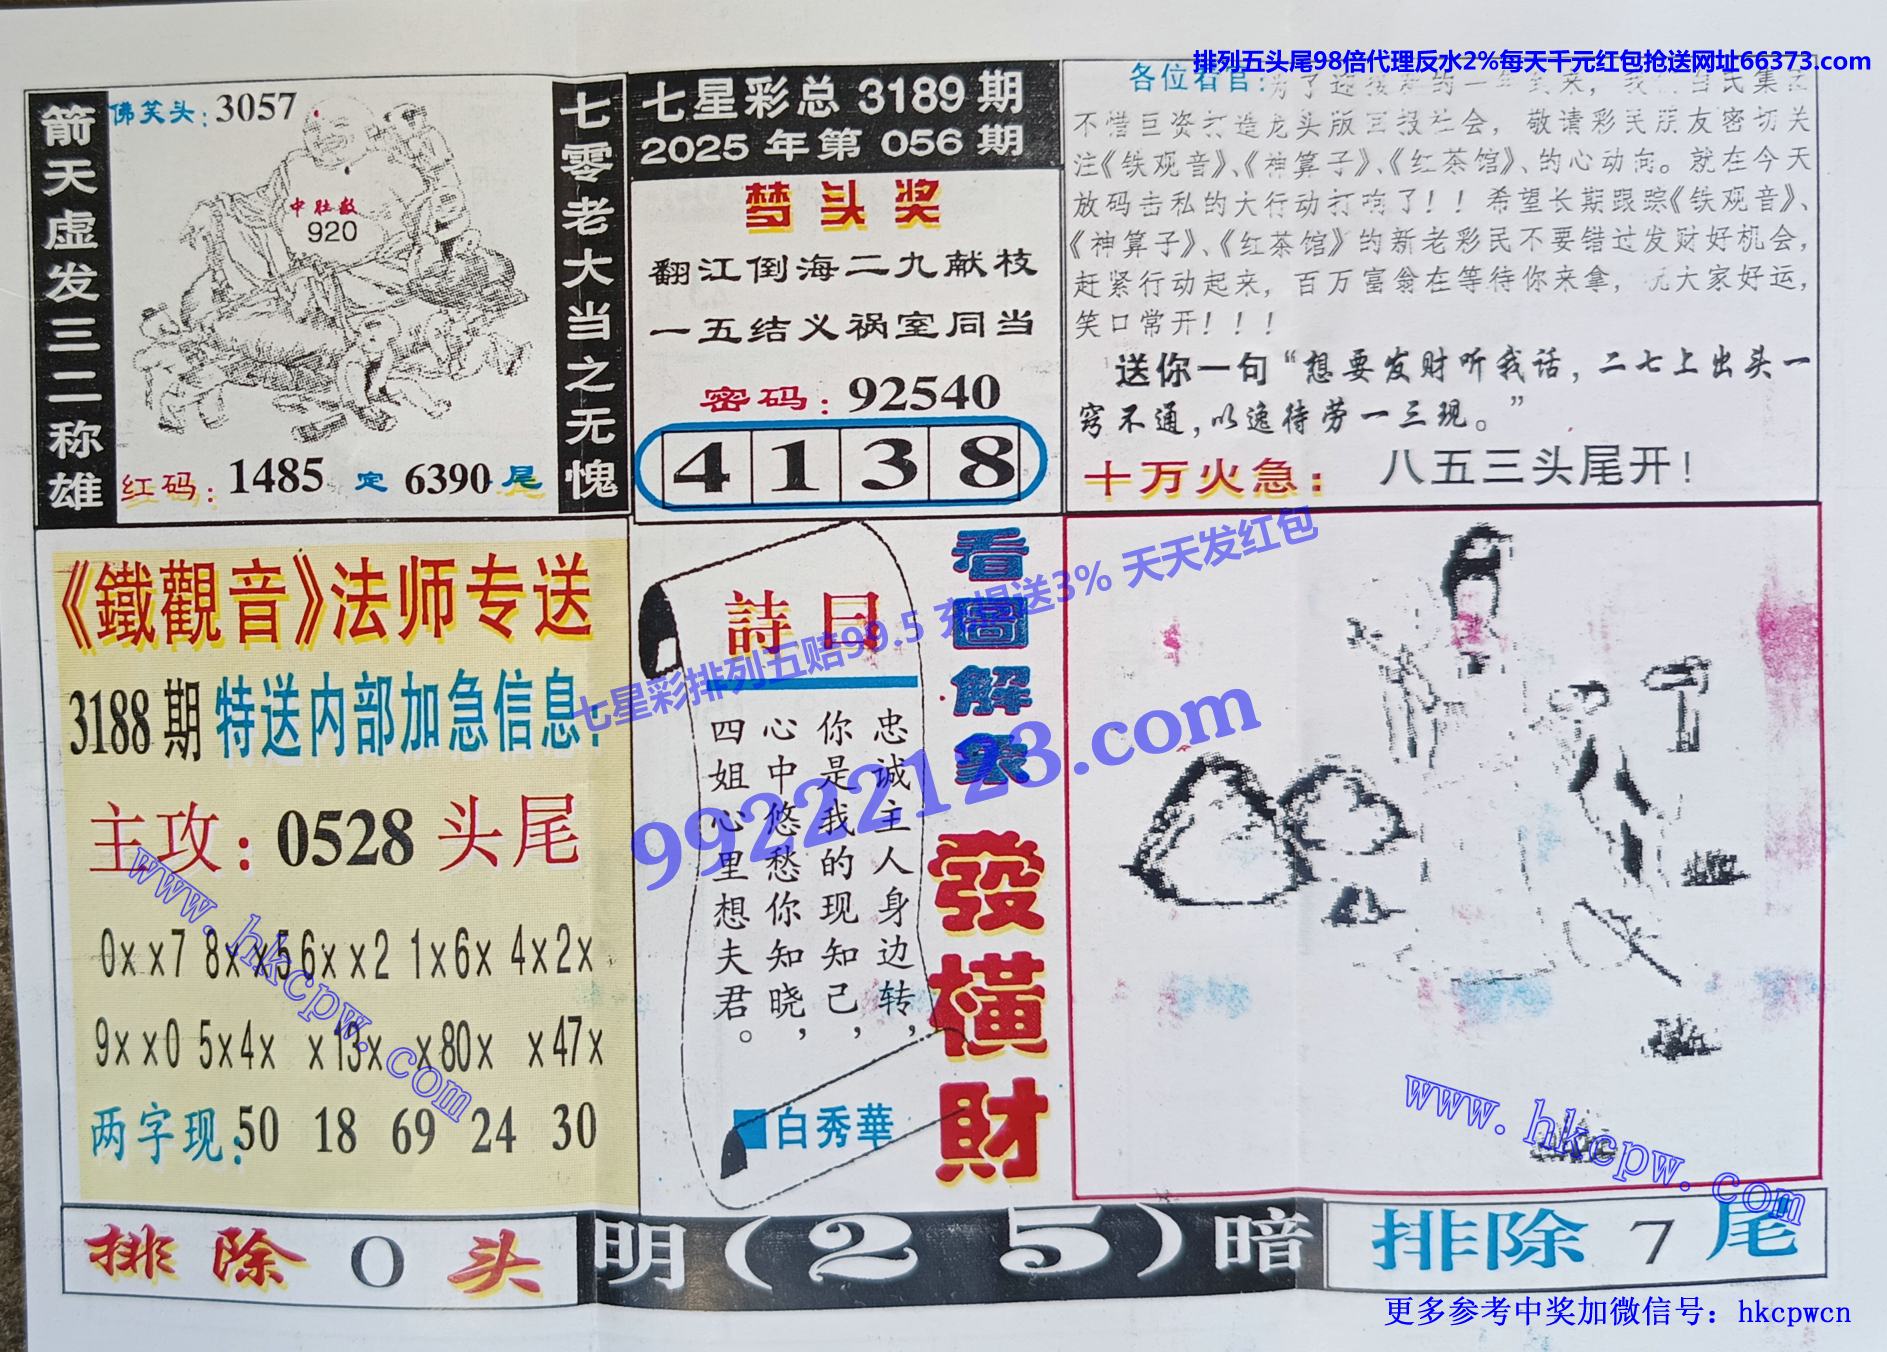 排列五头尾98倍代理反水2%每天千元红包抢送网址66373.com
箭天虚发三二称雄
佛笑头：3057
中肚数
920
红码：1485 定 6390 尾
七零老大当之无愧
七星彩总 3189 期
2025 年第 056 期
梦头奖
翻江倒海二九献枝
一五结义祸室同当
密码：92540
4 1 3 8
各位看官：为了迎接新的一年到来，我们当民集团
不惜巨资打造龙头版回报社会，敬请彩民朋友密切关
注《铁观音》、《神算子》、《红茶馆》、的心动向。就在今天
放码击私的大行动打响了！！希望长期跟踪《铁观音》、
《神算子》、《红茶馆》的新老彩民不要错过发财好机会，
赶紧行动起来，百万富翁在等待你来拿，祝大家好运，
笑口常开！！！
送你一句“想要发财听我话，二七上出头一
窍不通，以逸待劳一三现。”
十万火急：八五三头尾开！
《鐵觀音》法师专送
3188 期 特送内部加急信息：
主攻：0528 头尾
0xx7 8xx5 6xx2 1x6x 4x2x
9xx0 5x4x x13x x80x x47x
两字现：50 18 69 24 30
詩曰
忠诚主人身边转，
你是我的现知己，
心中悠愁你知晓，
四姐心里想夫君。
白秀華
看圖解象
發橫財
七星彩排列五赔99.5 充提送3% 天天发红包
99222123.com
www.hkcpw.com
www.hkcpw.com
排除 0 头
明(25)暗
排除 7 尾
更多参考中奖加微信号：hkcpwcn